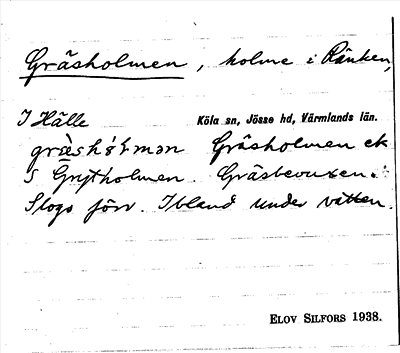 Gräsholmen, holme i Ränken,
I Hälle Köla sn, Jösse hd, Värmlands län.
Gräsholmen ek
S Grytholmen. Gräsbevuxen.
Slogs förr. Ibland under vatten.
ELOV SILFORS 1938.